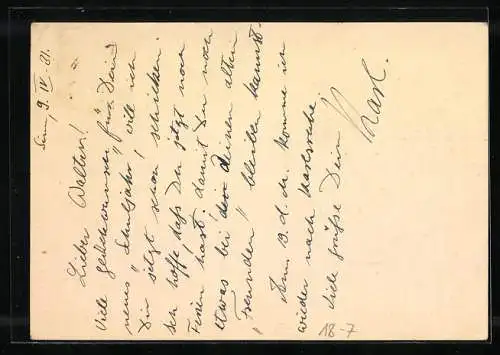 9. IV. 31.
Lieber Walter!
Viele Glückwünsche für Dein
neues „Schuljahr“ will ich
Dir jetzt schon schicken.
Ich hoffe, daß Du jetzt noch
Ferien hast, damit Du noch
etwas bei den Deinen alten
„Freunden“ bleiben kannst.
Am 13. d. M. komme ich
wieder nach Karlsruhe.
Viele Grüße Dein
Karl.
18-7